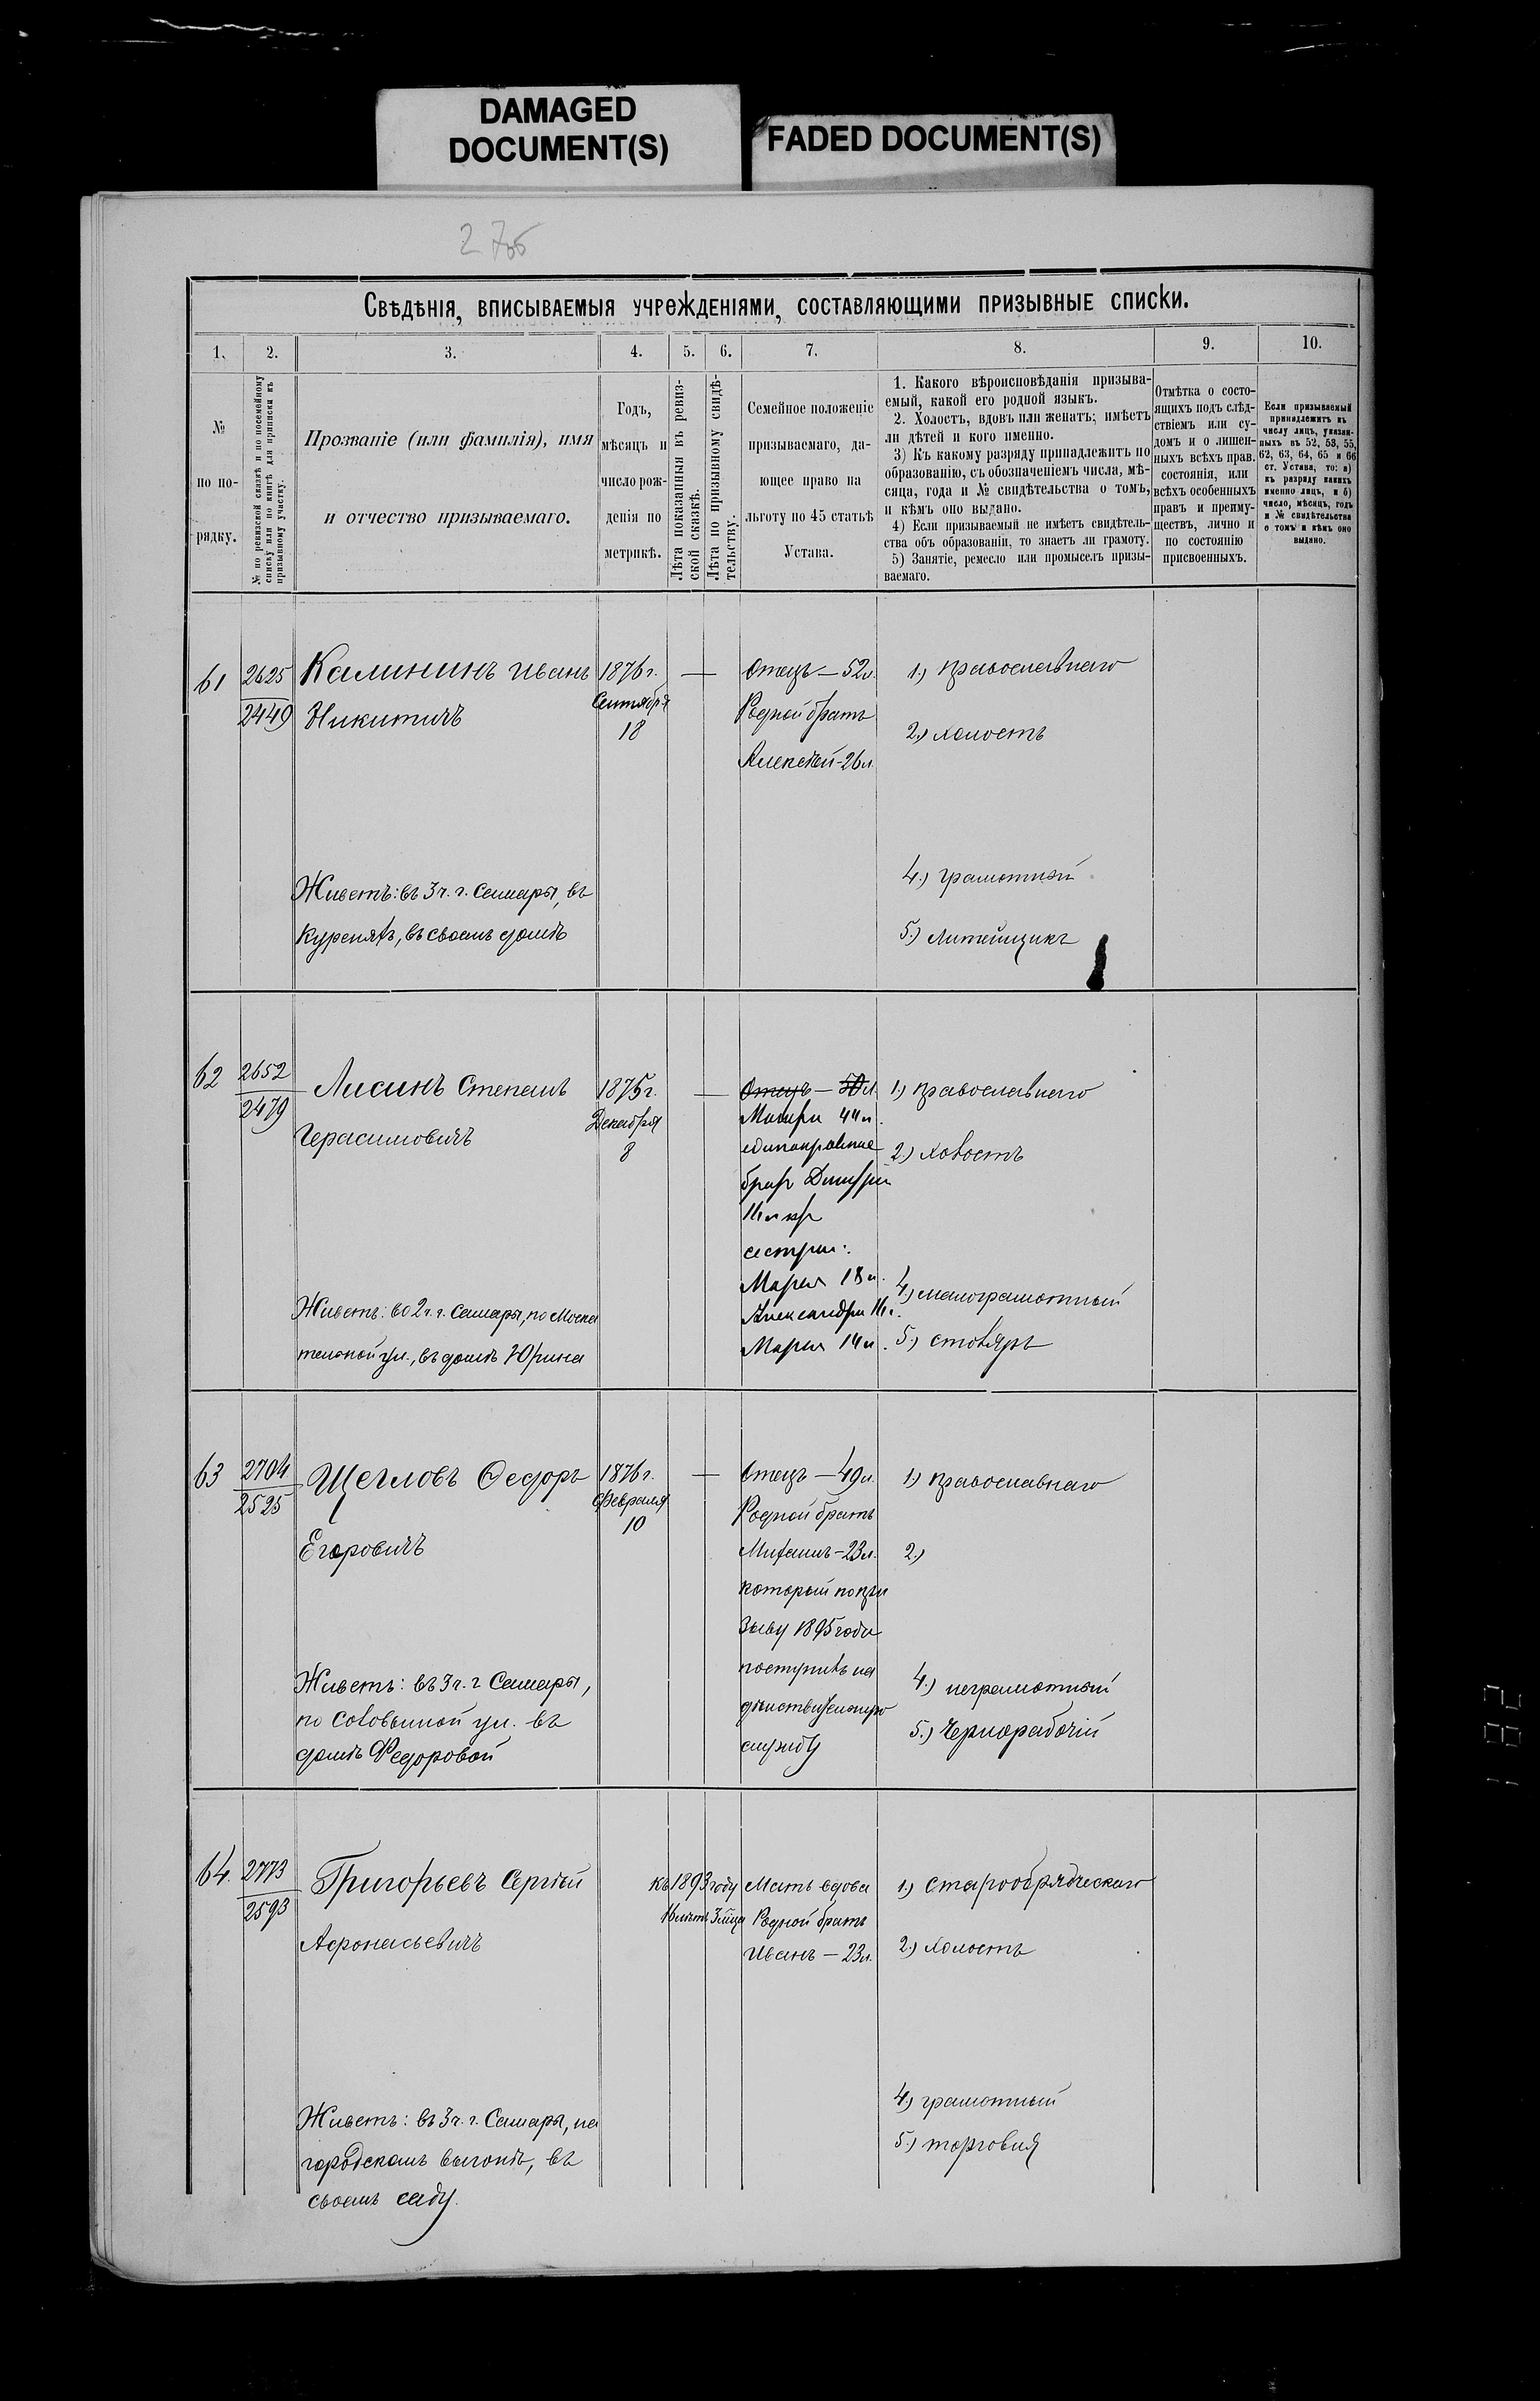 DAMAGED
DOCUMENT(S)
FADED DOCUMENT(S)
Свѣдѣнія, вписываемыя учрежденіями, составляющими призывные списки.
1.
2.
3.
4.
5.
6.
7.
8.
9.
10.
№
по по-
рядку.
№ по ревизской сказкѣ и по посемейному
списку или по книгѣ для приписки къ
призывному участку.
Прозваніе (или фамилія), имя
и отчество призываемаго.
Годъ,
мѣсяцъ и
число рож-
денія по
метрикѣ.
Лѣта показанныя въ ревиз-
ской сказкѣ.
Лѣта по призывному свидѣ-
тельству.
Семейное положеніе
призываемаго, да-
ющее право на
льготу по 45 статьѣ
Устава.
1. Какого вѣроисповѣданія призыва-
емый, какой его родной языкъ.
2. Холостъ, вдовъ или женатъ; имѣетъ
ли дѣтей и кого именно.
3) Къ какому разряду принадлежитъ по
образованію, съ обозначеніемъ числа, мѣ-
сяца, года и № свидѣтельства о томъ,
и кѣмъ оно выдано.
4) Если призываемый не имѣетъ свидѣтель-
ства объ образованіи, то знаетъ ли грамоту.
5) Занятіе, ремесло или промыселъ призы-
ваемаго.
Отмѣтка о состо-
ящихъ подъ слѣд-
ствіемъ или су-
домъ и о лишен-
ныхъ всѣхъ прав.
состоянія, или
всѣхъ особенныхъ
правъ и преиму-
ществъ, лично и
по состоянію
присвоенныхъ.
Если призываемый
принадлежитъ къ
числу лицъ, указан-
ныхъ въ 52, 53, 55,
62, 63, 64, 65 и 66
ст. Устава, то: а)
къ разряду какихъ
именно лицъ, и б)
число, мѣсяцъ, годъ
и № свидѣтельства
о томъ и кѣмъ оно
выдано.
61
2625
2449
Калининъ Иванъ
Никитичъ
Живетъ: въ 3 ч. г. Самары, въ
Куреняхъ, въ своемъ домѣ
1876 г.
Сентября
18
Отецъ — 52 л.
Родной братъ
Алексѣй - 26 л.
1.) Православнаго
2.) холостъ
4.) грамотный
5.) Литейщикъ
62
2652
2479
Лисинъ Степанъ
Герасимовичъ
Живетъ: во 2 ч. г. Самары, по Моска
тельной ул., въ домѣ Юрина
1875 г.
Декабря
8
Отецъ — 50 л.
Матери 44 л.
единокровные
братъ Дмитрій
сестры:
Марья 18 л.
Александра
Марья 14 л.
1.) Православнаго
2.) холостъ
4.) малограмотный
5.) столяръ
63
2704
2525
Щегловъ Ѳедоръ
Егоровичъ
Живетъ: въ 3 ч. г. Самары,
по Соловьиной ул. въ
домѣ Федоровой
1876 г.
Февраля
10
Отецъ — 49 л.
Родной братъ
Михаилъ - 23 л.
который по при
зыву 1895 года
поступилъ на
дѣйствительную
службу
1.) Православнаго
2.)
4.) неграмотный
5.) Чернорабочій
64.
2773
2593
Григорьевъ Сергѣй
Афонасьевичъ
Живетъ: въ 3 ч. г. Самары, на
городскомъ выгонѣ, въ
своемъ саду.
къ 1893 году
16 лѣтъ 3 мѣсяца
Мать вдова
Родной братъ
Иванъ — 23 л.
1.) Старообрядческаго
2.) холостъ
4.) грамотный
5.) торговля
182